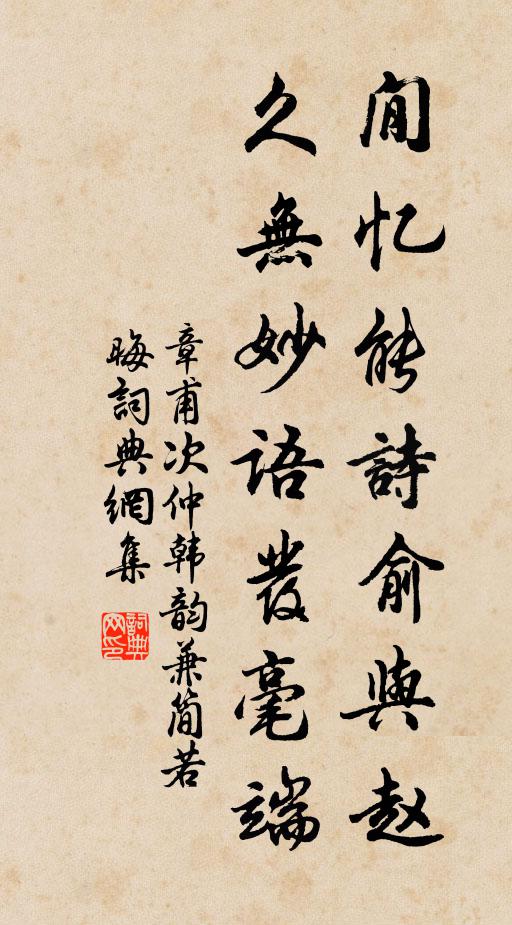 闲忆能詩俞與赵
久無妙语發毫端
章甫次仲韩韵兼简若
晦詞典網集
詞典网印